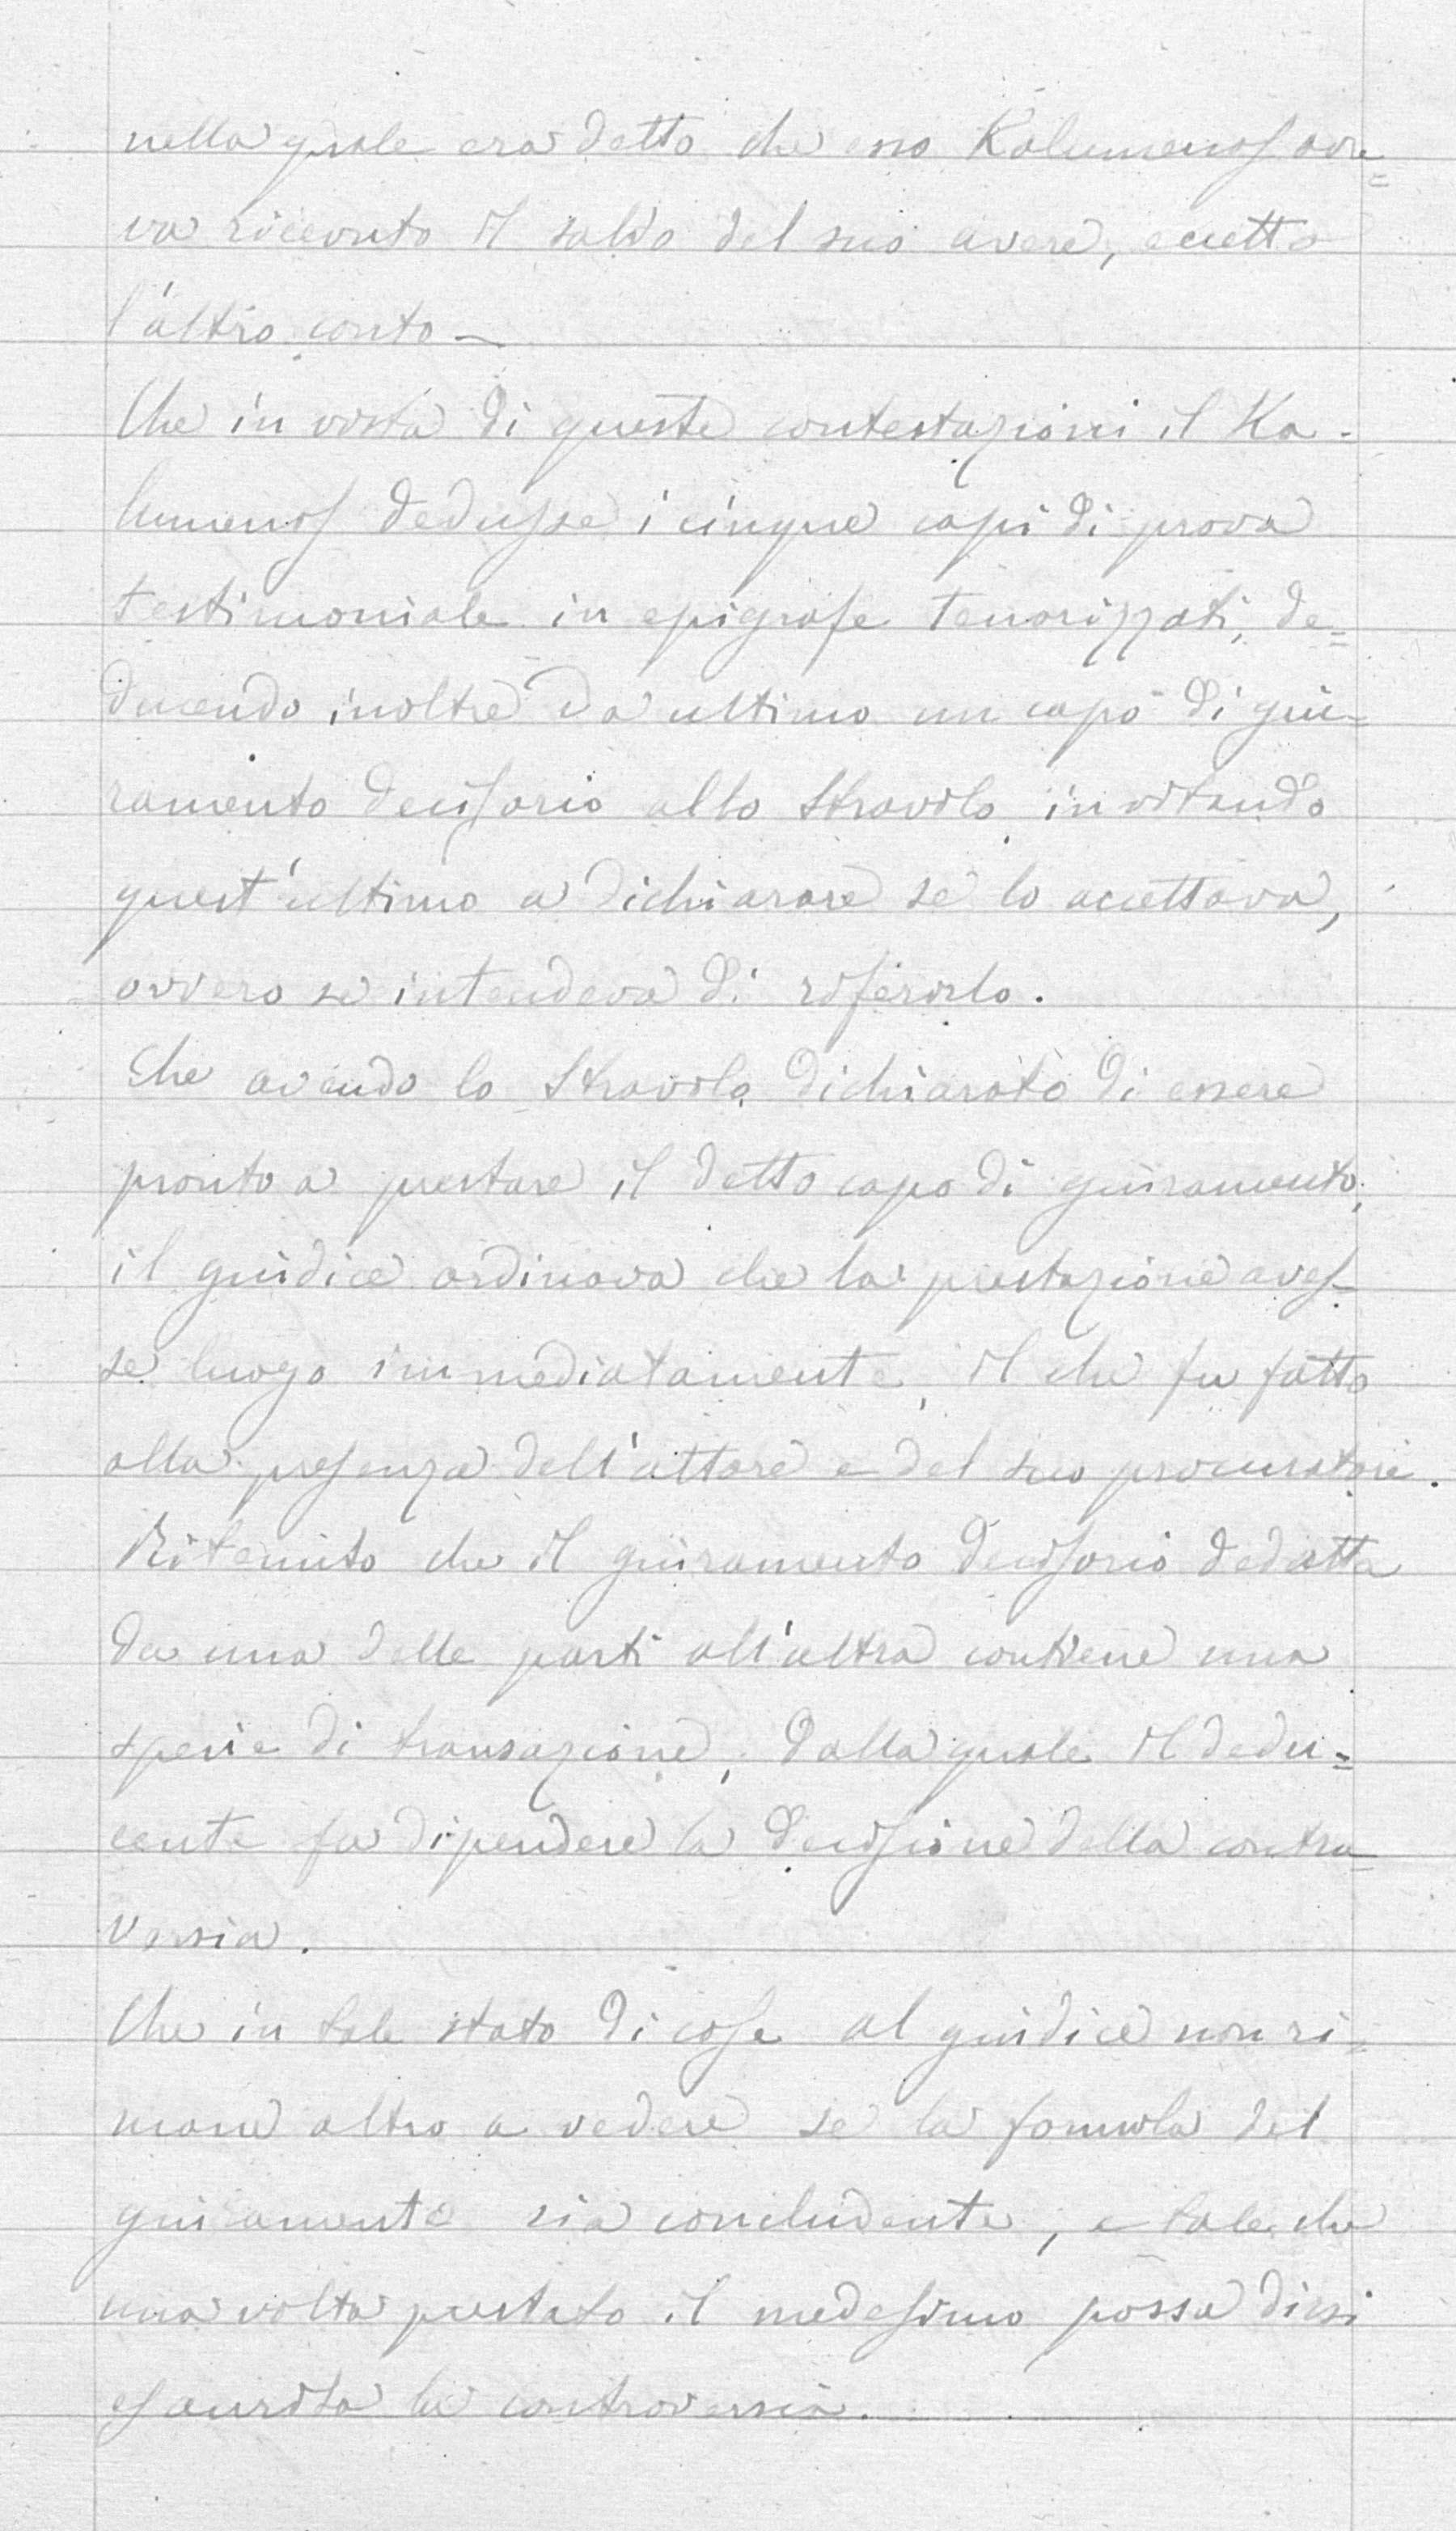 nella quale era detto che esso Kalumenos ave=
va ricevuto il saldo del suo avere, eccetto
l'altro conto —
Che in vista di queste contestazioni il Ka-
lumenos dedusse i cinque capi di prova
testimoniale in epigrafe tenorizzati, de=
ducendo inoltre da ultimo un capo di giu=
ramento decisorio allo Stravolo, invitando
quest'ultimo a dichiarare se lo accettava,
ovvero se intendeva di riferirlo.
Che avendo lo Stravolo dichiarato di essere
pronto a prestare il detto capo di giuramento,
il giudice ordinava che la prestazione aves-
se luogo immediatamente, il che fu fatto
alla presenza dell'attore e del suo procuratore.
Ritenuto che il giuramento decisorio dedotto
da una delle parti all'altra contiene una
specie di transazione, dalla quale il dedu=
cente fa dipendere la decisione della contro=
versia.
Che in tale stato di cose al giudice non ri=
mane altro a vedere se la formola del
giuramento sia concludente, e tale che
una volta prestato il medesimo possa dirsi
esaurita la controversia.